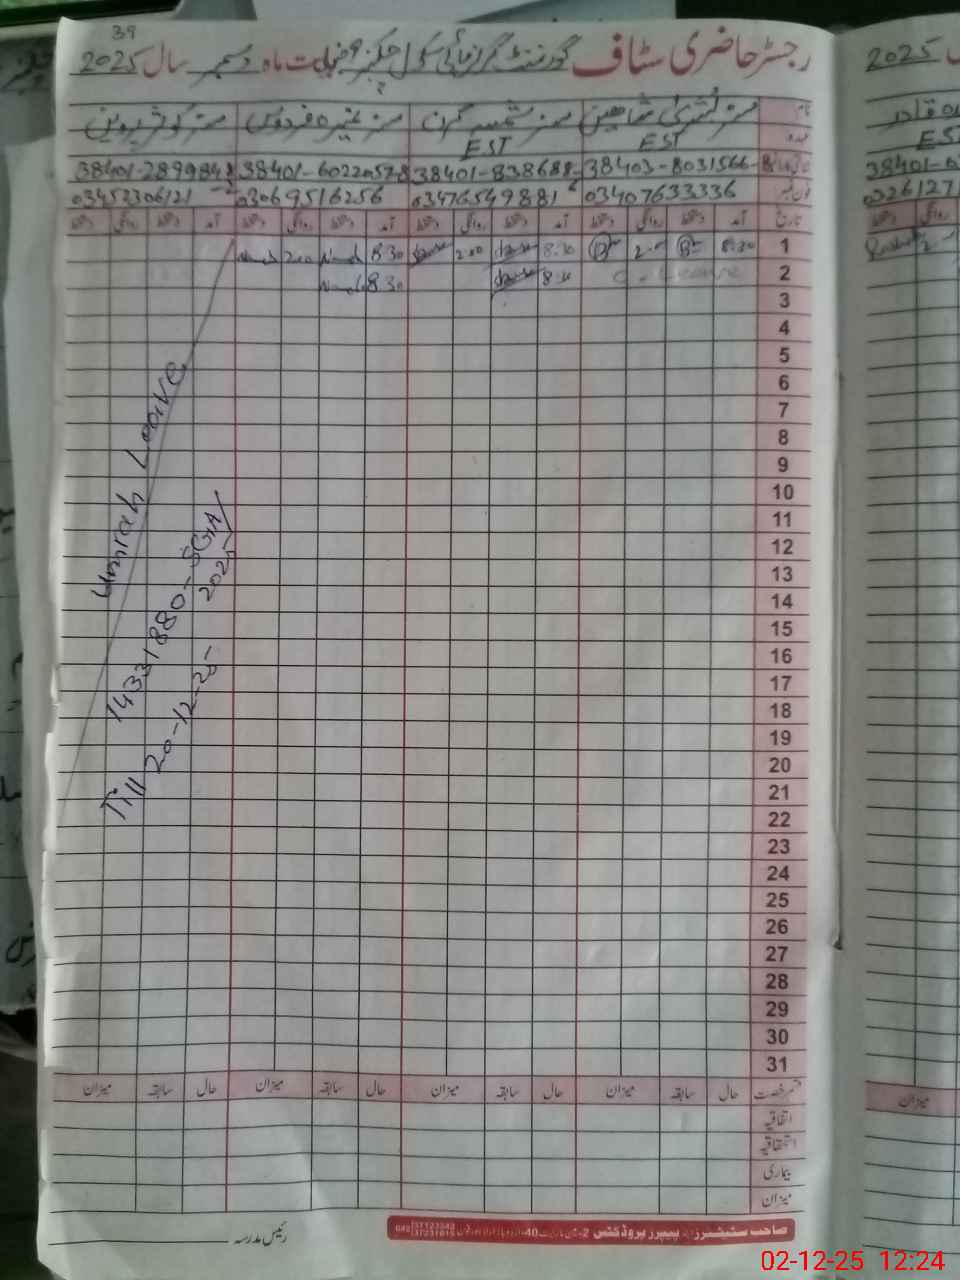 39
رجسٹر حاضری سٹاف گورنمنٹ گرلز ہائی سکول بابت ماہ دسمبر سال 2025
نام مسز بشریٰ شاہین مسز شمسہ کرن مسز منیزہ فردوس مسز کوثر پروین
عہدہ EST EST
38403-8031566-8 38401-838688 38401-6022052-8 38401-2899848
فون نمبر 03407633336 03476549881 03069516256 03452306121
تاریخ آمد دستخط روانگی دستخط آمد دستخط روانگی دستخط آمد دستخط روانگی دستخط آمد دستخط روانگی دستخط
1 8:30 2:00 8:30 2:00 8:30 2:00
2 C-Leave 8:30 8:30
3
4
5
6
7
8
9
10
11
12
13
14
15
16
17
18
19
20
21
22
23
24
25
26
27
28
29
30
31
Umrah Leave
14331880-SGA/
2025
Till 20-12-25
قسم رخصت حال سابقہ میزان حال سابقہ میزان حال سابقہ میزان حال سابقہ میزان
اتفاقیہ
استحقاقیہ
بیماری
میزان
رئیس مدرسہ
صاحب سٹیشنرز اینڈ پیپرز پروڈکٹس
2025
قادر
EST
38401-
0326127
روانگی دستخط
میزان
02-12-25 12:24